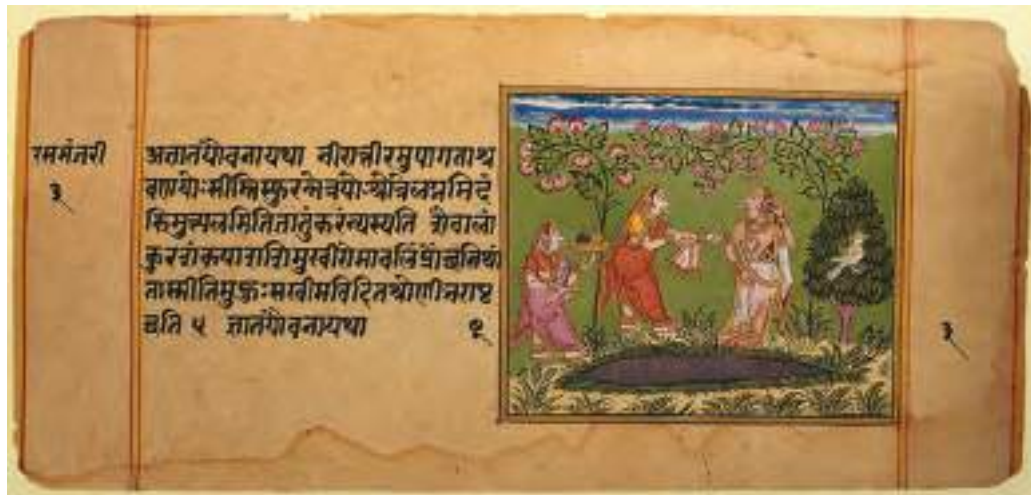 रसमंजरी
३
अज्ञातयौवनायथा नीरात्तीरमुपागताश्र
वणयोःसीम्निस्फुरन्नेत्रयोःश्रोत्रेलग्नमिदं
किमुत्पलमितिज्ञातुंकरंन्यस्यति शैवालां
कुरशंकयाशशिमुखीरोमावलिंप्रोंछतिश्रां
तास्मीतिमुहुःसखीमविदितश्रोणीभरापृ
च्छति ५ ज्ञातयौवनायथा
३